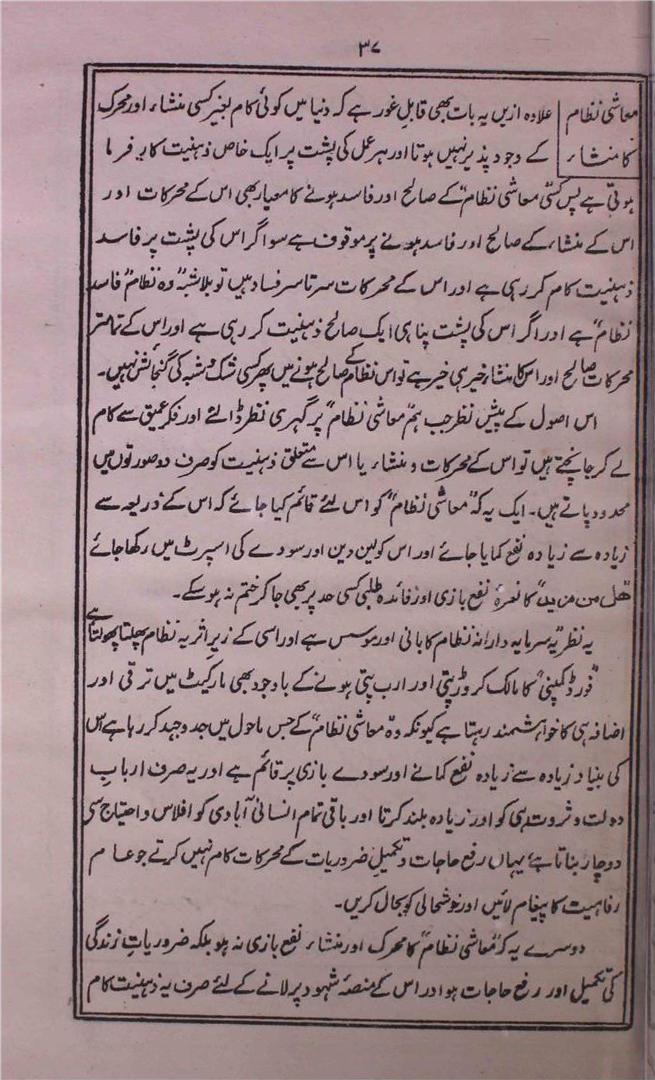 ۳۷
معاشی نظام علاوہ ازیں یہ بات بھی قابل غور ہے کہ دنیا میں کوئی کام بغیر کسی منشاء اور محرک
کا منشاء کے وجود پذیر نہیں ہوتا اور ہر عمل کی پشت پر ایک خاص ذہنیت کارفرما
ہوتی ہے پس کسی معاشی نظام کے صالح اور فاسد ہونے کا معیار بھی اس کے محرکات اور
اس کے منشاء کے صالح اور فاسد ہونے پر موقوف ہے سو اگر اس کی پشت پر فاسد
ذہنیت کام کر رہی ہے اور اس کے محرکات سرتاسر فساد ہیں تو بلاشبہ وہ نظام "فاسد
نظام" ہے اور اگر اس کی پشت پناہی ایک صالح ذہنیت کر رہی ہے اور اس کے تمامتر
محرکات صالح اور اس کا منشاء خیر ہی خیر ہے تو اس نظام کے صالح ہونے میں پھر کسی شک و شبہ کی گنجائش نہیں۔
اس اصول کے پیش نظر جب ہم "معاشی نظام" پر گہری نظر ڈالتے اور فکر عمیق سے کام
لے کر جانچتے ہیں تو اس کے محرکات و منشاء یا اس سے متعلق ذہنیت کو صرف دو صورتوں میں
محدود پاتے ہیں۔ ایک یہ کہ "معاشی نظام" کو اس لئے قائم کیا جائے کہ اس کے ذریعہ سے
زیادہ سے زیادہ نفع کمایا جائے اور اس کو لین دین اور سودے کی اسپرٹ میں رکھا جائے
"ھل من مزید" کا نعرہ نفع بازی اور فائدہ طلبی کسی حد پر بھی جا کر ختم نہ ہو سکے۔
یہ نظریہ سرمایہ دارانہ نظام کا بانی اور موسس ہے اور اسی کے زیر اثر یہ نظام پھلتا پھولتا ہے
"فورڈ کمپنی" کا مالک کروڑ پتی اور ارب پتی ہونے کے باوجود بھی مارکیٹ میں ترقی اور
اضافہ ہی کا خواہشمند رہتا ہے کیونکہ وہ "معاشی نظام" کے جس ماحول میں جدوجہد کر رہا ہے اس
کی بنیاد زیادہ سے زیادہ نفع کمانے اور سودے بازی پر قائم ہے اور یہ صرف ارباب
دولت و ثروت ہی کو اور زیادہ بلند کرتا اور باقی تمام انسانی آبادی کو افلاس و احتیاج سے
دوچار بناتا ہے، یہاں رفع حاجات و تکمیل ضروریات کے محرکات کام نہیں کرتے جو عام
رفاہیت کا پیغام لائیں اور خوشحالی کو بحال کریں۔
دوسرے یہ کہ "معاشی نظام" کا محرک اور منشاء نفع بازی نہ ہو بلکہ ضروریات زندگی
کی تکمیل اور رفع حاجات ہو اور اس کے منصۂ شہود پر لانے کے لئے صرف یہ ذہنیت کام